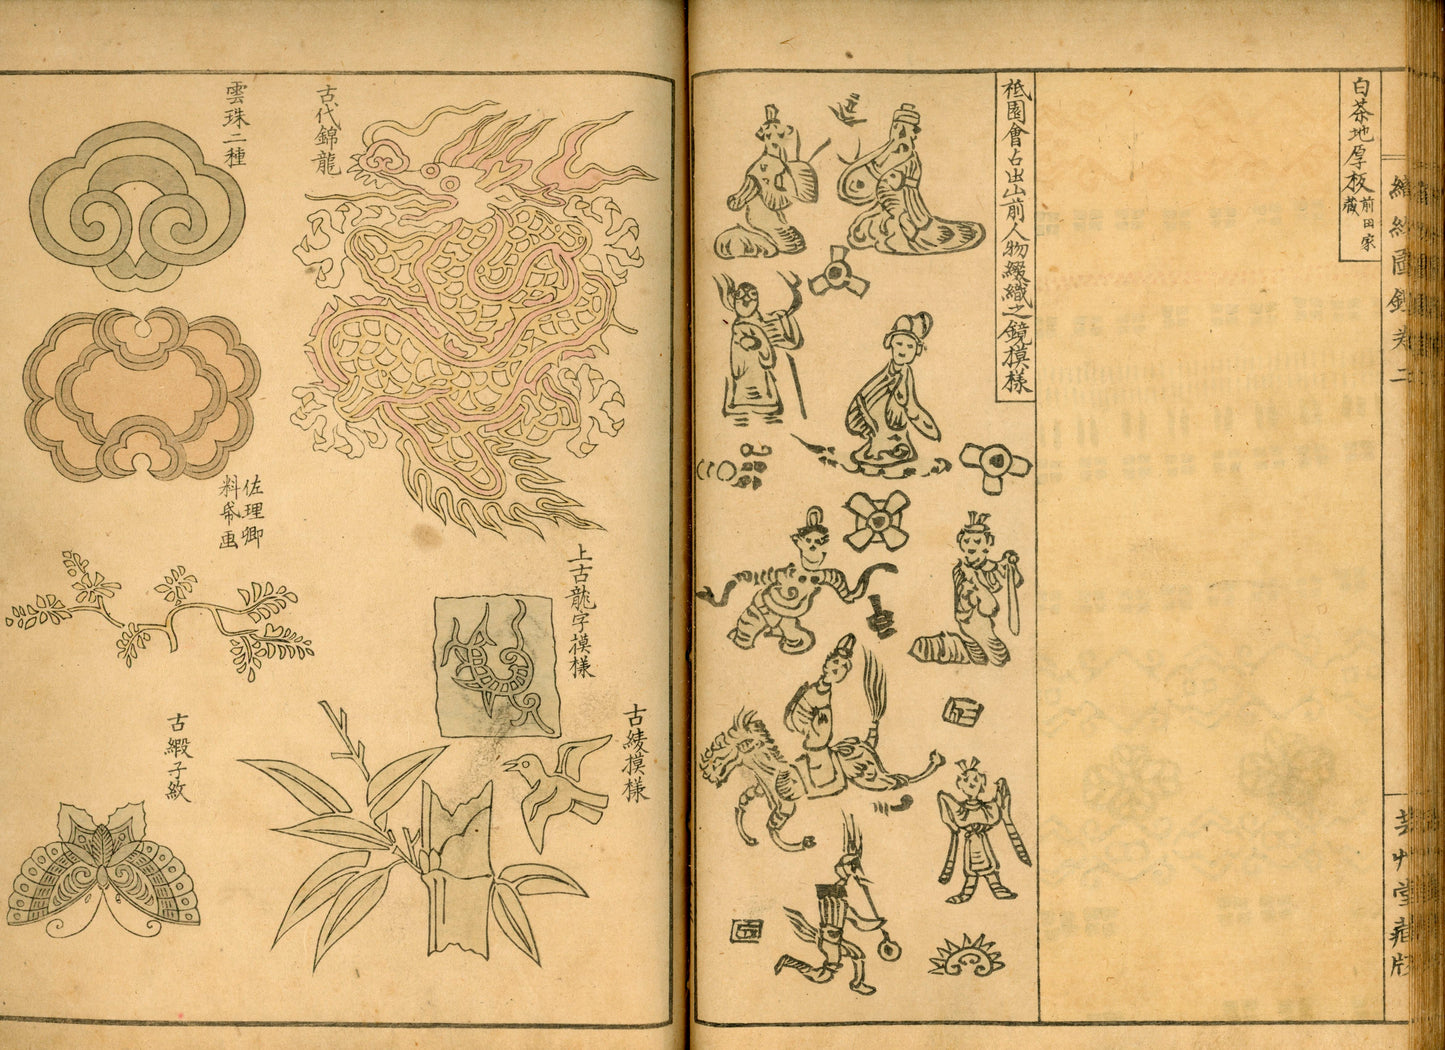 白茶地厚板 前田家
蔵
祗園會占出山前人物綴織之鏡摸様
古代錦龍
雲珠二種
佐理卿
料帋画
上古龍字摸様
古綾摸様
古緞子紋
芸艸堂藏版